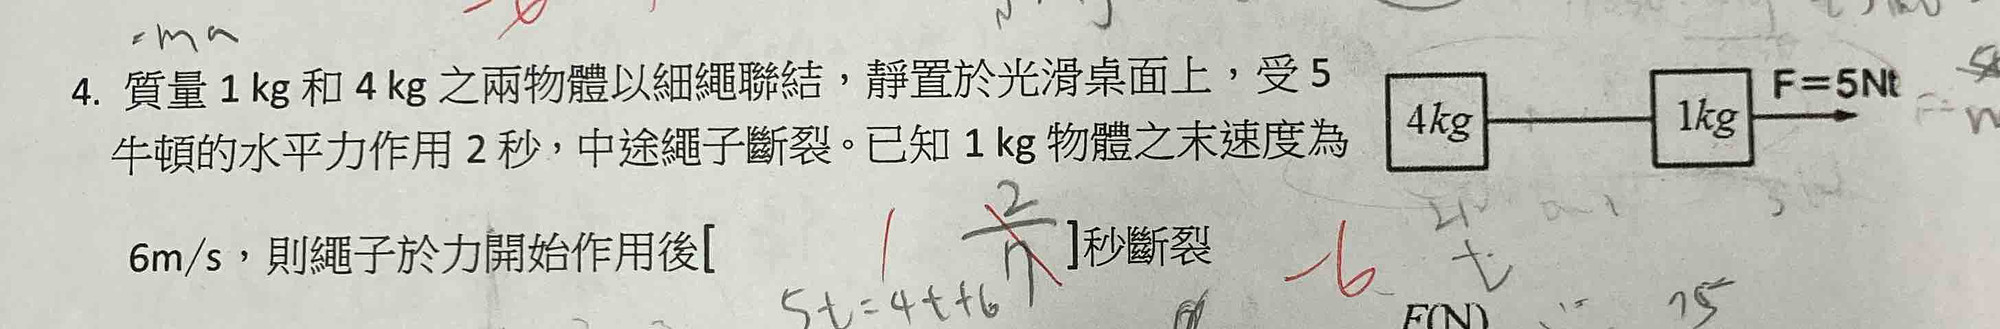 =ma
4. 質量 1 kg 和 4 kg 之兩物體以細繩聯結，靜置於光滑桌面上，受 5
牛頓的水平力作用 2 秒，中途繩子斷裂。已知 1 kg 物體之末速度為
6m/s，則繩子於力開始作用後[ 1 ]秒斷裂
4kg
1kg
F=5Nt
-6
5t=4t+6
F(N)